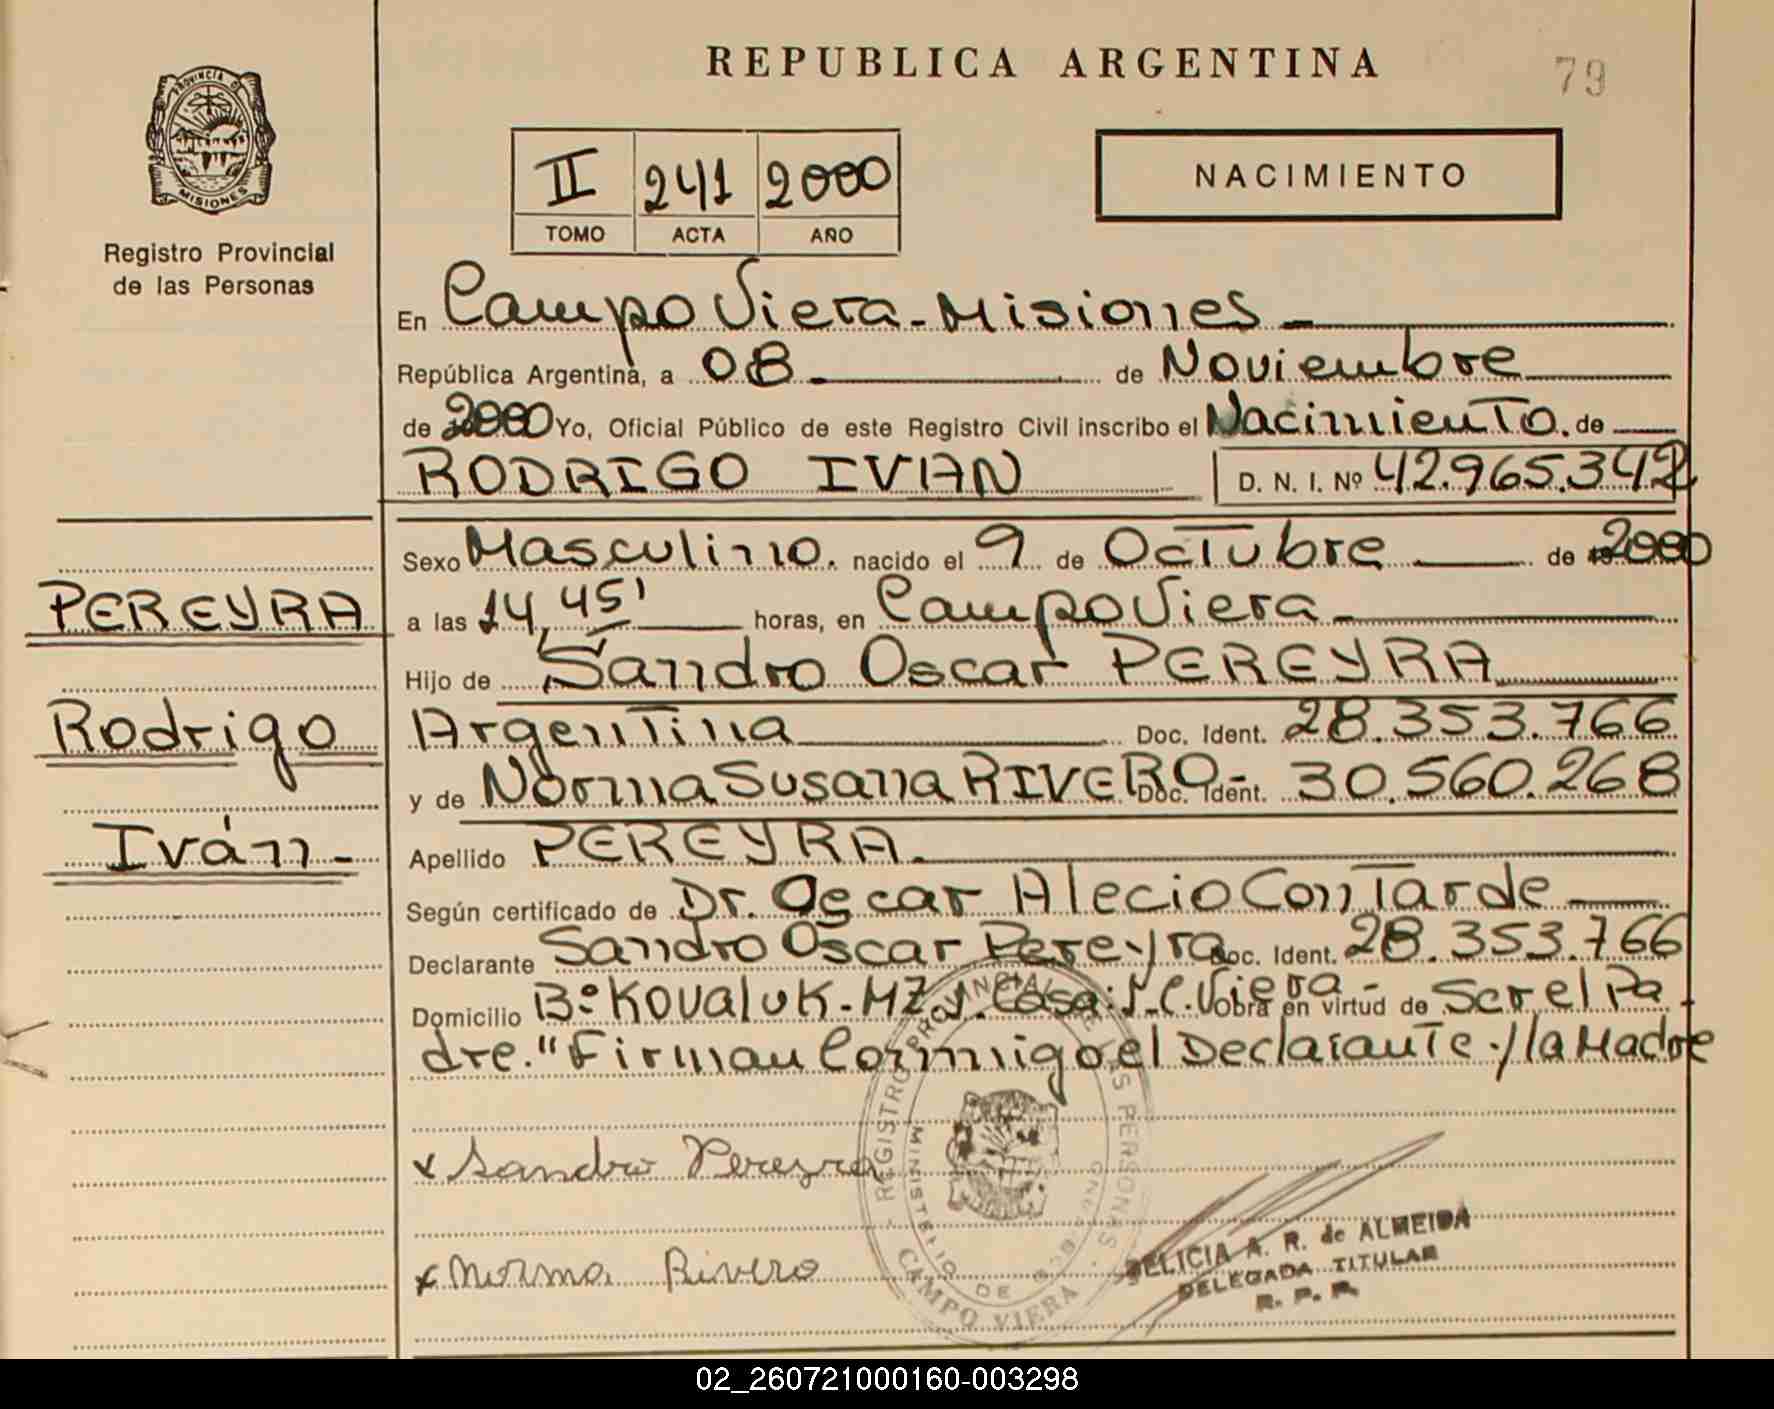 REPUBLICA ARGENTINA
79
PROVINCIA D
MISIONES
Registro Provincial
de las Personas
II 241 2000
TOMO ACTA AÑO
NACIMIENTO
En Campo Viera - Misiones -
República Argentina, a 08 - de Noviembre
de 2000 Yo, Oficial Público de este Registro Civil inscribo el Nacimiento. de
RODRIGO IVAN D. N. I. Nº 42.965.342
Sexo Masculino. nacido el 9 de Octubre de 2000
PEREYRA
a las 14,45' horas, en Campo Viera -
Hijo de Sandro Oscar PEREYRA
Rodrigo
Argentina Doc. Ident. 28.353.766
y de Norma Susana RIVERO - Doc. Ident. 30.560.268
Iván -
Apellido PEREYRA.
Según certificado de Dr. Oscar Alecio Contarde
Declarante Sandro Oscar Pereyra Doc. Ident. 28.353.766
Domicilio Bº Kovaluk - MZ. Casa: C. Viera - Obra en virtud de Ser el Pa-
dre." Firman Conmigo el Declarante./ la Madre
x Sandro Pereyra
x Norma Rivero
REGISTRO PROVINCIAL DE LAS PERSONAS
MINISTERIO DE GOBIERNO
CAMPO VIERA
DELICIA A. R. de ALMEIDA
DELEGADA TITULAR
R. P. P.
02_260721000160-003298